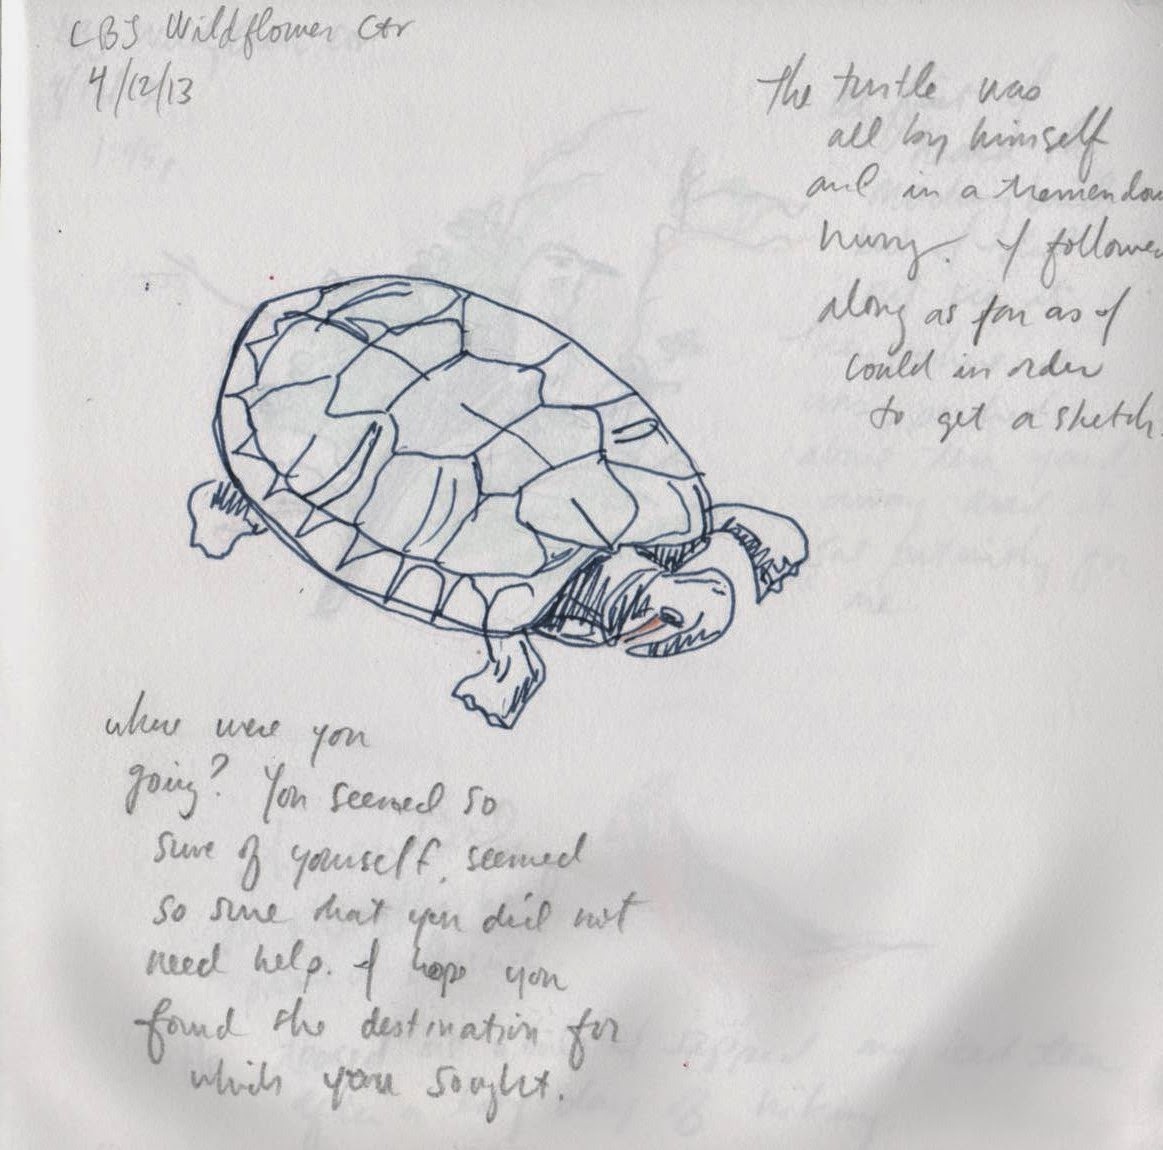 LBJ Wildflower Ctr
4/12/13
The turtle was
all by himself
and in a tremendou
hurry. I followe
along as far as I
could in order
to get a sketch.
where were you
going? You seemed so
sure of yourself, seemed
so sure that you did not
need help. I hope you
found the destination for
which you sought.